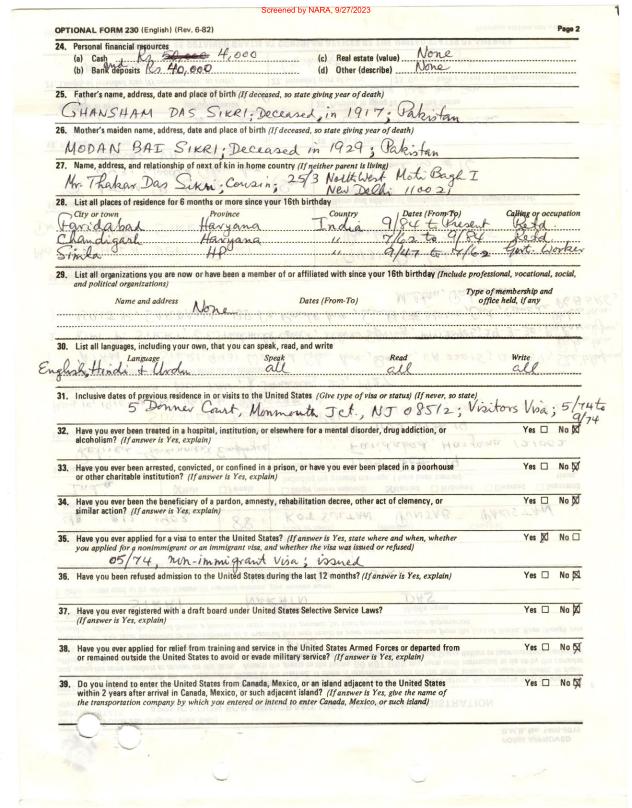 Screened by NARA, 9/27/2023
1
OPTIONAL FORM 230 (English) (Rev. 6-82) Page 2
24. Personal financial resources
(a) Cash Rs 50,000 4,000 (c) Real estate (value) None
(b) Bank deposits Rs. 40,000 (d) Other (describe) None
25. Father's name, address, date and place of birth (If deceased, so state giving year of death)
GHANSHAM DAS SIKRI; Deceased, in 1917; Pakistan
26. Mother's maiden name, address, date and place of birth (If deceased, so state giving year of death)
MODAN BAI SIKRI; Deceased in 1929; Pakistan
27. Name, address, and relationship of next of kin in home country (If neither parent is living)
Mr. Thakar Das Sikri; Cousin; 25/3 NorthWest Moti Bagh I
New Delhi 110021
28. List all places of residence for 6 months or more since your 16th birthday
City or town Province Country Dates (From-To) Calling or occupation
Faridabad Haryana India 9/84 to Present Retd
Chandigarh Haryana " 7/62 to 9/84 Retd
Simla HP " 9/47 to 7/62 Govt. Worker
29. List all organizations you are now or have been a member of or affiliated with since your 16th birthday (Include professional, vocational, social,
and political organizations)
Name and address Dates (From-To) Type of membership and
office held, if any
None
30. List all languages, including your own, that you can speak, read, and write
Language Speak Read Write
English, Hindi & Urdu all all all
31. Inclusive dates of previous residence in or visits to the United States (Give type of visa or status) (If never, so state)
5 Donner Court, Monmouth Jct., NJ 08512; Visitors Visa; 5/74 to
9/74
32. Have you ever been treated in a hospital, institution, or elsewhere for a mental disorder, drug addiction, or Yes ☐ No ☒
alcoholism? (If answer is Yes, explain)
33. Have you ever been arrested, convicted, or confined in a prison, or have you ever been placed in a poorhouse Yes ☐ No ☒
or other charitable institution? (If answer is Yes, explain)
34. Have you ever been the beneficiary of a pardon, amnesty, rehabilitation decree, other act of clemency, or Yes ☐ No ☒
similar action? (If answer is Yes, explain)
35. Have you ever applied for a visa to enter the United States? (If answer is Yes, state where and when, whether Yes ☒ No ☐
you applied for a nonimmigrant or an immigrant visa, and whether the visa was issued or refused)
05/74, non-immigrant visa; issued
36. Have you been refused admission to the United States during the last 12 months? (If answer is Yes, explain) Yes ☐ No ☒
37. Have you ever registered with a draft board under United States Selective Service Laws? Yes ☐ No ☒
(If answer is Yes, explain)
38. Have you ever applied for relief from training and service in the United States Armed Forces or departed from Yes ☐ No ☒
or remained outside the United States to avoid or evade military service? (If answer is Yes, explain)
39. Do you intend to enter the United States from Canada, Mexico, or an island adjacent to the United States Yes ☐ No ☒
within 2 years after arrival in Canada, Mexico, or such adjacent island? (If answer is Yes, give the name of
the transportation company by which you entered or intend to enter Canada, Mexico, or such island)